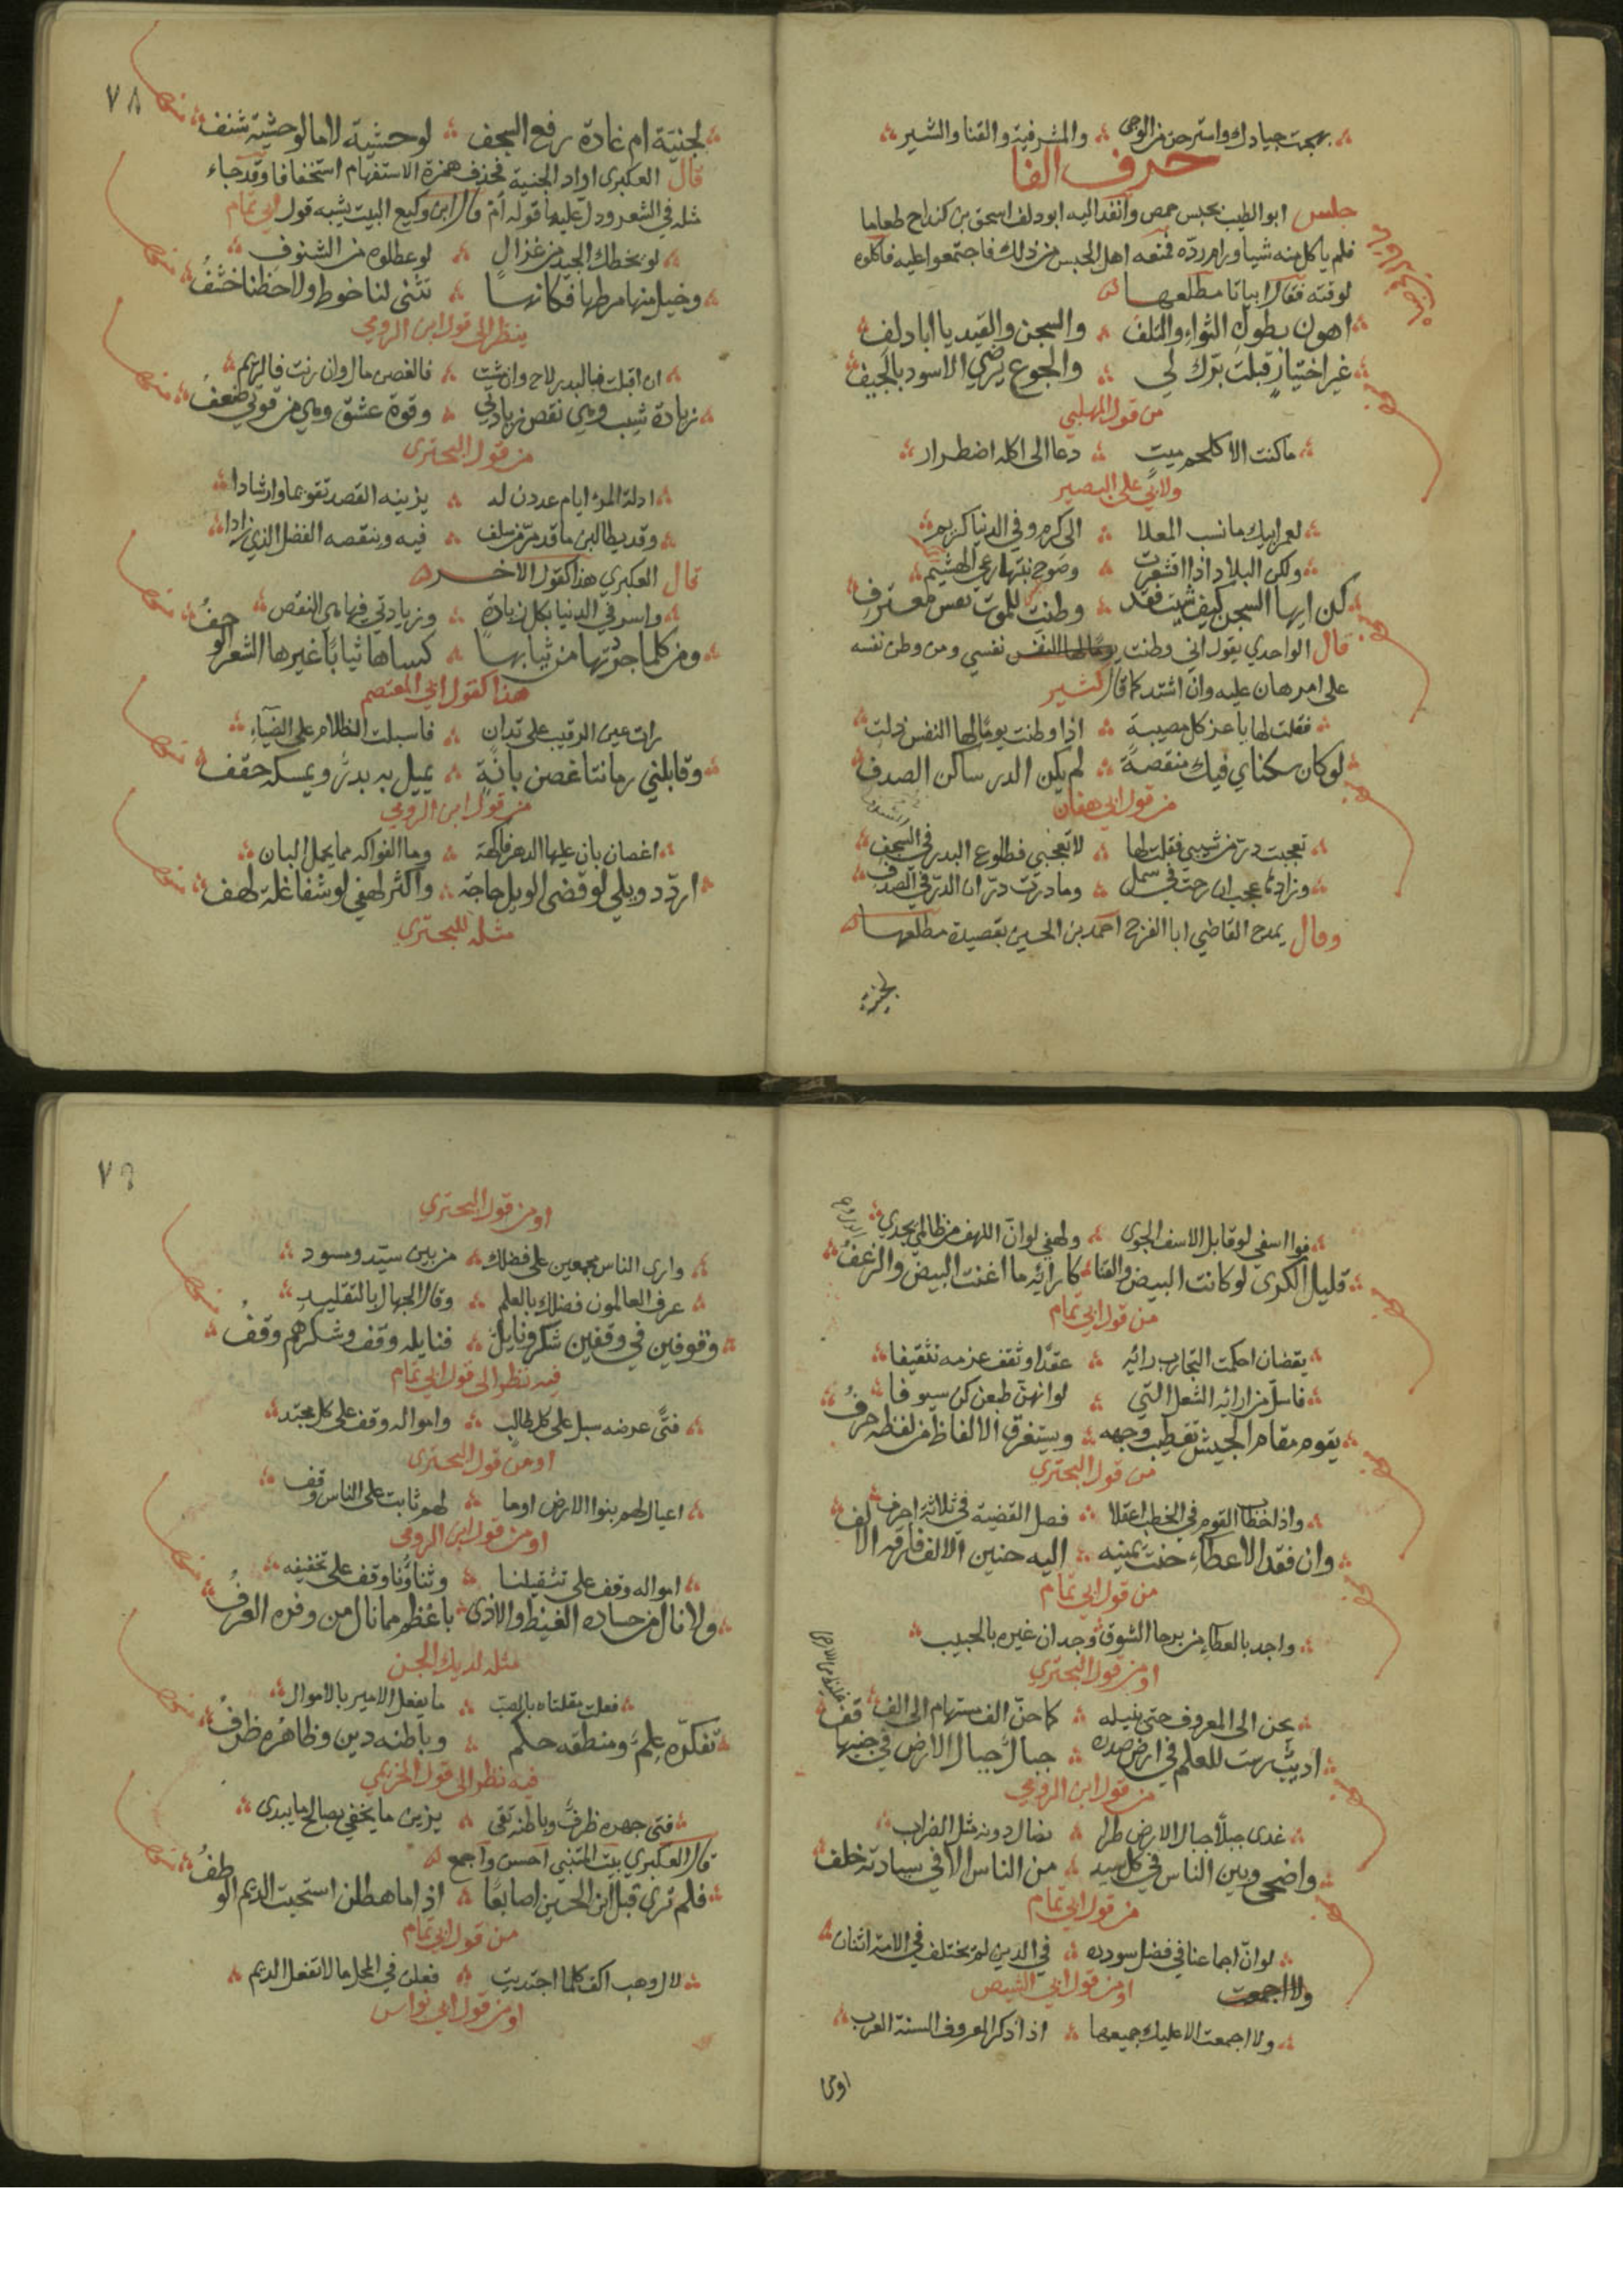 بهجت جيادك واستر حتى من الوجى والمشرفية والقنا والشير
حرف الفا
جلس ابو الطيب بحبس حمص وانفد اليه ابو دلف اسحق بن كنداج طعاما
فلم ياكل منه شيا ورام رده فمنعه اهل الحبس من ذلك فاجتمعوا عليه فاكلوه
لوقته فقال ابياتا مطلعها
اهون بطول الثواء والتلف والسجن والقيد يا ابا دلف
غير اختيار قبلت برك لي والجوع يرضي الاسود بالجيف
من قول المهلبي
ما كنت الا كلحم ميت دعا الى اكله اضطرار
ولابي علي البصير
لعمر ابيك ما نسب المعلا الى كرم وفي الدنيا كريم
ولكن البلاد اذا اقشعرت وصوح نبتها رعي الهشيم
كن ايها السجن كيف شيت فقد وطنت للموت نفس معترف
قال الواحدي يقول اني وطنت نفسي ومن وطن نفسه
على امر هان عليه وان اشتد كما قال كثير
فقلت لها يا عز كل مصيبة اذا وطنت يوما لها النفس ذلت
لو كان سكناي فيك منقصة لم يكن الدر ساكن الصدف
من قول ابي هفان
تعجبت در من شيبي فقلت لها لا تعجبي فطلوع البدر في السجف
وزادها عجب ان رحت في سمل وما درت در ان الدر في الصدف
وقال يمدح القاضي ابا الفرج احمد بن الحسين بقصيدة مطلعها
لجنية
٧٨
لجنية ام غادة رفع السجف لوحشية لا ما لوحشية شنف
قال العكبري اراد الجنية فحذف همزة الاستفهام استخفافا وقد جاء
مثله في الشعر ودل عليها قوله ام قال ابن وكيع البيت يشبه قول ابي تمام
لو يخطك الجيد من غزال لو عطلوه من الشنوف
وخيل منها مرطها فكانها تثنى لنا خوط ولاحظنا خشف
ينظر الى قول ابن الرومي
ان اقبلت فالبدر لاح وان مشت فالغصن مال وان رنت فالريم
زيادة شيب وهي نقص زيادتي وقوة عشق وهي من قوتي ضعف
من قول البحتري
ادلة المرء ايام عددن له يزينه القصد تقويما وارشادا
وقد يطالبن ما قدمن من سلف فيه وينقصه الفضل الذي زادا
قال العكبري هذا كقول الاخر
واسر في الدنيا بكل زيادة وزيادتي فيها هي النقص
ومن كلما جردتها من ثيابها كساها ثيابا غيرها الشعر الوحف
هذا كقول ابي المعتصم
رات عين الرقيب على تدان فاسبلت الظلام على الضياء
وقابلني رمانتا غصن بانة يميل به بدر ويمسكه حقف
من قول ابن الرومي
اغصان بان عليها الدهر فاكهة وما الفواكه مما يحمل البان
اردد ويلي لو قضى الويل حاجة واكثر لهفي لو شفا غلة لهف
مثله للبحتري
فوا اسفي لو قابل الاسف الجوى ولهفي لو ان اللهف من ظالمي يجدي
قليل الكرى لو كانت البيض والقنا كارائه ما اغنت البيض والزغف
من قول ابي تمام
يقضان احكمت التجارب رائه عقدا وثقف عزمه تثقيفا
فاستل من ارائه الشعل التي لو انهن طبعن كن سيوفا
يقوم مقام الجيش تقطيب وجهه ويستغرق الالفاظ من لفظه حرف
من قول البحتري
واذا خطاب القوم في الخطب اعتلا فصل القضية في ثلاثة احرف
وان فقد الاعطاء حنت يمينه اليه حنين الالف فارقه الالف
من قول ابي تمام
واجد بالعطاء من برحا الشوق وجدان غيره بالحبيب
او من قول البحتري
يحن الى المعروف حتى ينيله كما حن الف مستهام الى الف
اديب رست للعلم في ارض صدره جبال جبال الارض في جنبها قف
من قول ابن الرومي
غدى جبلا جبال الارض طرا تضال دونه مثل الضراب
واضحى وبين الناس في كل سيد من الناس الا في سيادته خلف
من قول ابي تمام
لو ان اجماعنا في فضل سودده في الدين لم يختلف في الامة اثنان
ولا اجمعت او من قول ابي الشيص
ولا اجمعت الا عليك جميعها اذا ذكر المعروف السنة العرب
او من
٧٩
او من قول البحتري
وارى الناس مجمعين على فضلك من بين سيد ومسود
عرف العالمون فضلك بالعلم وقال الجهال بالتقليد
وقوفين في وقفين شكر ونايل فنايله وقف وشكرهم وقف
فيه نظر الى قول ابي تمام
فتى عرضه سبل على كل طالب وامواله وقف على كل مجتد
او من قول البحتري
اعيال لهم بنوا الارض اوما لهم ثابت على الناس وقف
او من قول ابن الرومي
امواله وقف على تثقيلنا وثناؤنا وقف على تخفيفه
ولا نال من حساده الغيظ والاذى باعظم مما نال من وفره العرف
مثله لديك الجن
فعلت مقلتاه بالصب ما يفعل الامير بالاموال
تفكره علم ومنطقه حكم وباطنه دين وظاهره ظرف
فيه نظر الى قول الخريمي
فتى جهره ظرف وباطنه تقى يزين ما يخفي بصالح ما يبدى
قال العكبري بيت المتنبي احسن واجمع
فلم نرى قبل ابن الحسين اصابعا اذا ما هطلن استحيت الديم الوطف
من قول ابي تمام
لال وهب اكف كلما اجتديت فعلن في المحل ما لا تفعل الديم
او من قول ابي نواس